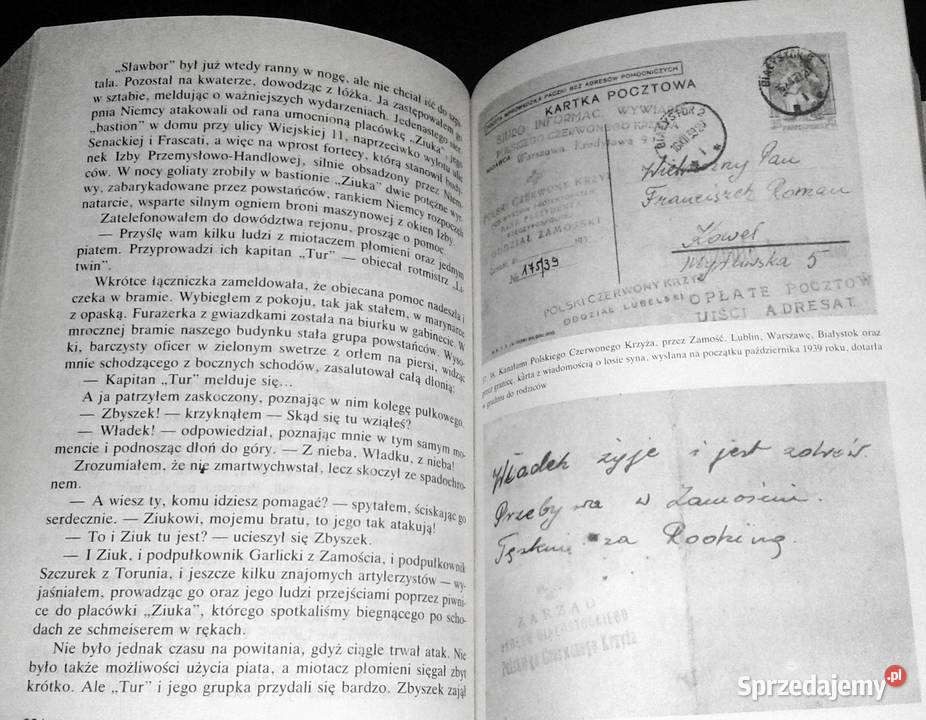 „Sławbor" był już wtedy ranny w nogę, ale nie chciał iść do szpi-
tala. Pozostał na kwaterze, dowodząc z łóżka. Ja zastępowałem go
w sztabie, meldując o ważniejszych wydarzeniach. Jedenastego sier-
pnia Niemcy atakowali od rana umocnioną placówkę „Ziuka", jego
„bastion" w domu przy ulicy Wiejskiej 11, naprzeciwko wylotu ulic
Senackiej i Frascati, a więc na wprost fortecy, którą stanowił budy-
nek Izby Przemysłowo-Handlowej, silnie obsadzony przez Niem-
ców. W nocy goliaty zrobiły w bastionie „Ziuka" dwie potężne wyr-
wy, zabarykadowane przez powstańców, rankiem Niemcy rozpoczęli
natarcie, wsparte silnym ogniem broni maszynowej z okien Izby.
Zatelefonowałem do dowództwa rejonu, prosząc o pomoc.
— Przyślę wam kilku ludzi z miotaczem płomieni oraz jednym
piatem. Przyprowadzi ich kapitan „Tur" — obiecał rotmistrz „Li-
twin".
Wkrótce łączniczka zameldowała, że obiecana pomoc nadeszła i
czeka w bramie. Wybiegłem z pokoju, tak jak stałem, w marynarce
z opaską. Furażerka z gwiazdkami została na biurku w gabinecie. W
mrocznej bramie naszego budynku stała grupa powstańców. Wyso-
ki, barczysty oficer w zielonym swetrze z orłem na piersi, widząc
mnie schodzącego z bocznych schodów, zasalutował całą dłonią:
— Kapitan „Tur" melduje się...
A ja patrzyłem zaskoczony, poznając w nim kolegę pułkowego.
— Zbyszek! — krzyknąłem — Skąd się tu wziąłeś?
— Władek! — odpowiedział, poznając mnie w tym samym mo-
mencie i podnosząc dłoń do góry. — Z nieba, Władku, z nieba!
Zrozumiałem, że nie zmartwychwstał, lecz skoczył ze spadochro-
nem.
— A wiesz ty, komu idziesz pomagać? — spytałem, ściskając go
serdecznie. — Ziukowi, mojemu bratu, to jego tak atakują!
— To i Ziuk tu jest? — ucieszył się Zbyszek.
— I Ziuk, i podpułkownik Garlicki z Zamościa, i podpułkownik
Szczurek z Torunia, i jeszcze kilku znajomych artylerzystów — wy-
jaśniałem, prowadząc go oraz jego ludzi przejściami poprzez piwni-
ce do placówki „Ziuka", którego spotkaliśmy biegnącego po scho-
dach ze schmeiserem w rękach.
Nie było jednak czasu na powitania, gdyż ciągle trwał atak. Nie
było także możliwości użycia piata, a miotacz płomieni sięgał zbyt
krótko. Ale „Tur" i jego grupka przydali się bardzo. Zbyszek zajął
KARTKA POCZTOWA
BIURO INFORMAC. WYWIAD.
POLSKIEGO CZERWONEGO KRZYŻA
Warszawa
BIAŁYSTOK 2
BIAŁYSTOK
POLSKI CZERWONY KRZYŻ
ODDZIAŁ ZAMOJSKI
№ 175/39
Wielmożny Pan
Franciszek Roman
Kowel
5
POLSKI CZERWONY KRZYŻ
ODDZIAŁ LUBELSKI
OPŁATĘ POCZTOW
UIŚCI ADRESAT.
17, 18. Kanałami Polskiego Czerwonego Krzyża, przez Zamość, Lublin, Warszawę, Białystok oraz
przez granicę, karta z wiadomością o losie syna, wysłana na początku października 1939 roku, dotarła
w grudniu do rodziców
Władek żyje i jest zdrów.
Przebywa w Zamościu.
Tęskni za Rodziną.
ZARZĄD
Polskiego Czerwonego Krzyża
Sprzedajemy.pl